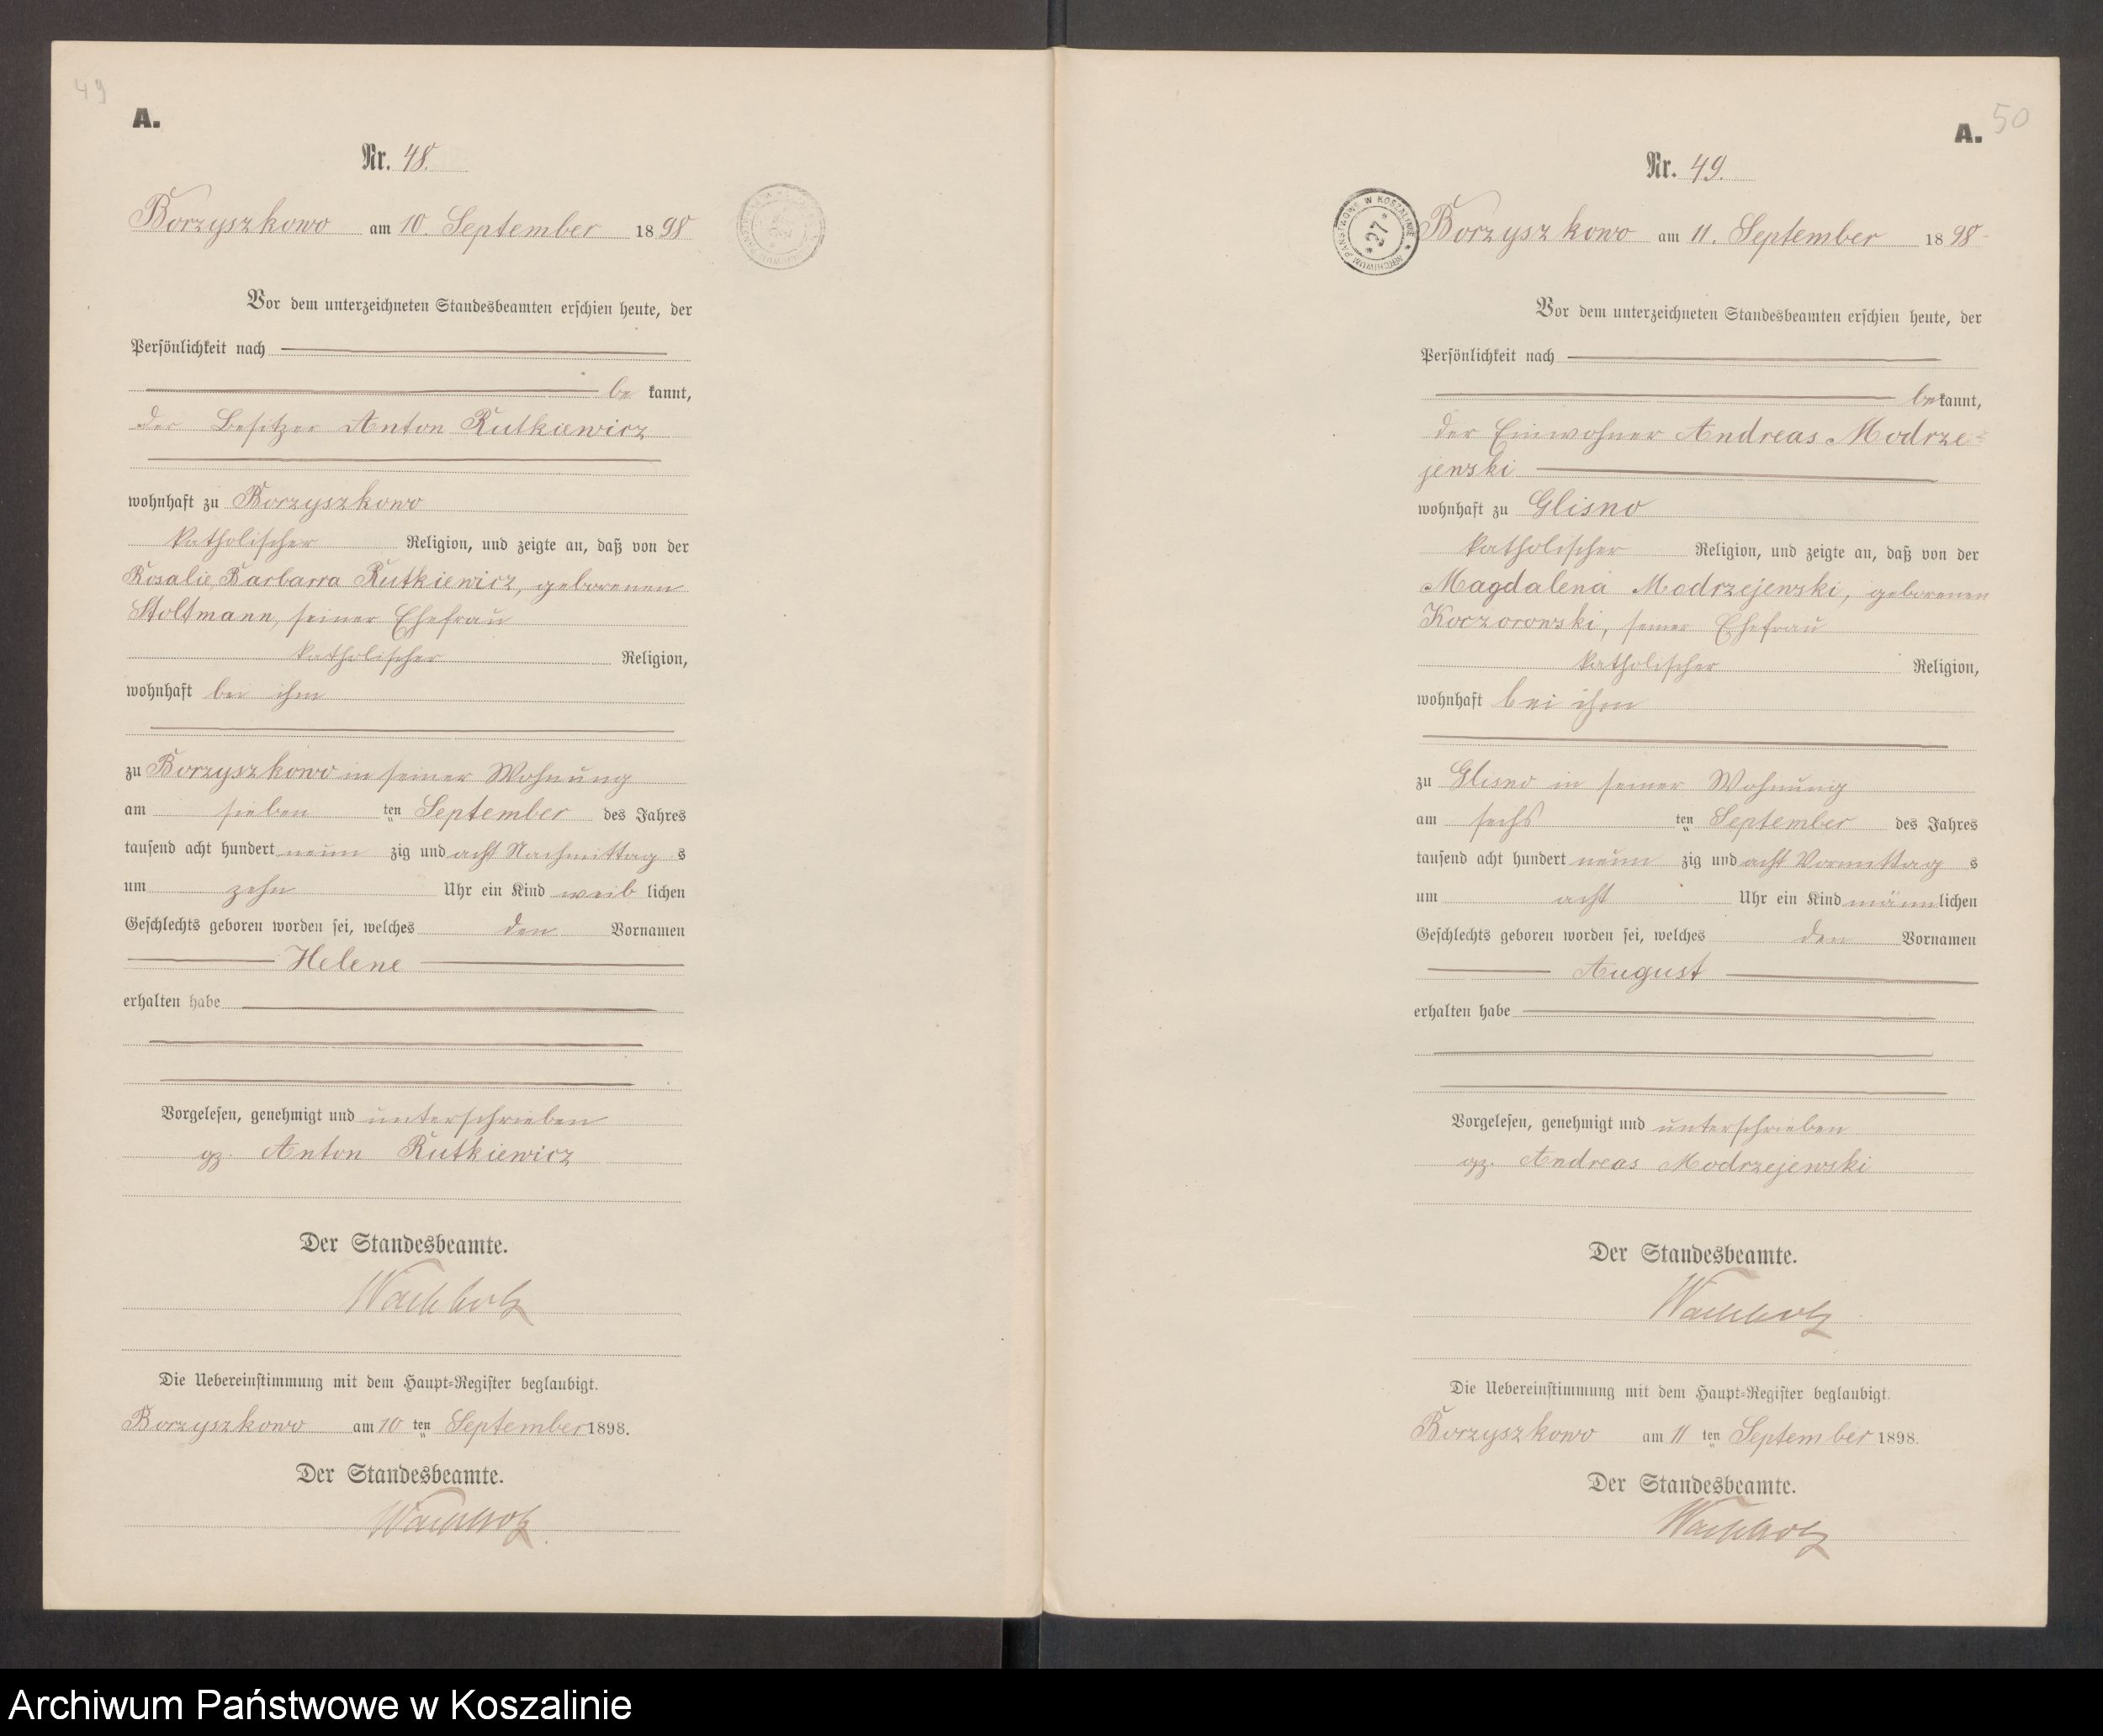 49
A.
Nr. 48.
Borzyszkowo am 10. September 1898
Vor dem unterzeichneten Standesbeamten erschien heute, der
Persönlichkeit nach
be kannt,
der Besitzer Anton Rutkiewicz
wohnhaft zu Borzyszkowo
katholischer Religion, und zeigte an, daß von der
Rosalie, Barbarra Rutkiewicz, geborenen
Stoltmann, seiner Ehefrau
katholischer Religion,
wohnhaft bei ihm
zu Borzyszkowo in seiner Wohnung
am sieben ten September des Jahres
tausend acht hundert neun zig und acht Nachmittag s
um zehn Uhr ein Kind weib lichen
Geschlechts geboren worden sei, welches den Vornamen
Helene
erhalten habe
Vorgelesen, genehmigt und unterschrieben
gz. Anton Rutkiewicz
Der Standesbeamte.
Wachholz
Die Uebereinstimmung mit dem Haupt-Register beglaubigt.
Borzyszkowo am 10 ten September 1898.
Der Standesbeamte.
Wachholz
50
A.
Nr. 49.
ARCHIWUM PAŃSTWOWE W KOSZALINIE * 27 *
Borzyszkowo am 11. September 1898
Vor dem unterzeichneten Standesbeamten erschien heute, der
Persönlichkeit nach
bekannt,
der Einwohner Andreas Modrze-
jewski
wohnhaft zu Glisno
katholischer Religion, und zeigte an, daß von der
Magdalena Modrzejewski, geborenen
Koczorowski, seiner Ehefrau
katholischer Religion,
wohnhaft bei ihm
zu Glisno in seiner Wohnung
am sechs ten September des Jahres
tausend acht hundert neun zig und acht Vormittag s
um acht Uhr ein Kind männlichen
Geschlechts geboren worden sei, welches den Vornamen
August
erhalten habe
Vorgelesen, genehmigt und unterschrieben
gz. Andreas Modrzejewski
Der Standesbeamte.
Wachholz
Die Uebereinstimmung mit dem Haupt-Register beglaubigt.
Borzyszkowo am 11 ten September 1898.
Der Standesbeamte.
Wachholz
Archiwum Państwowe w Koszalinie